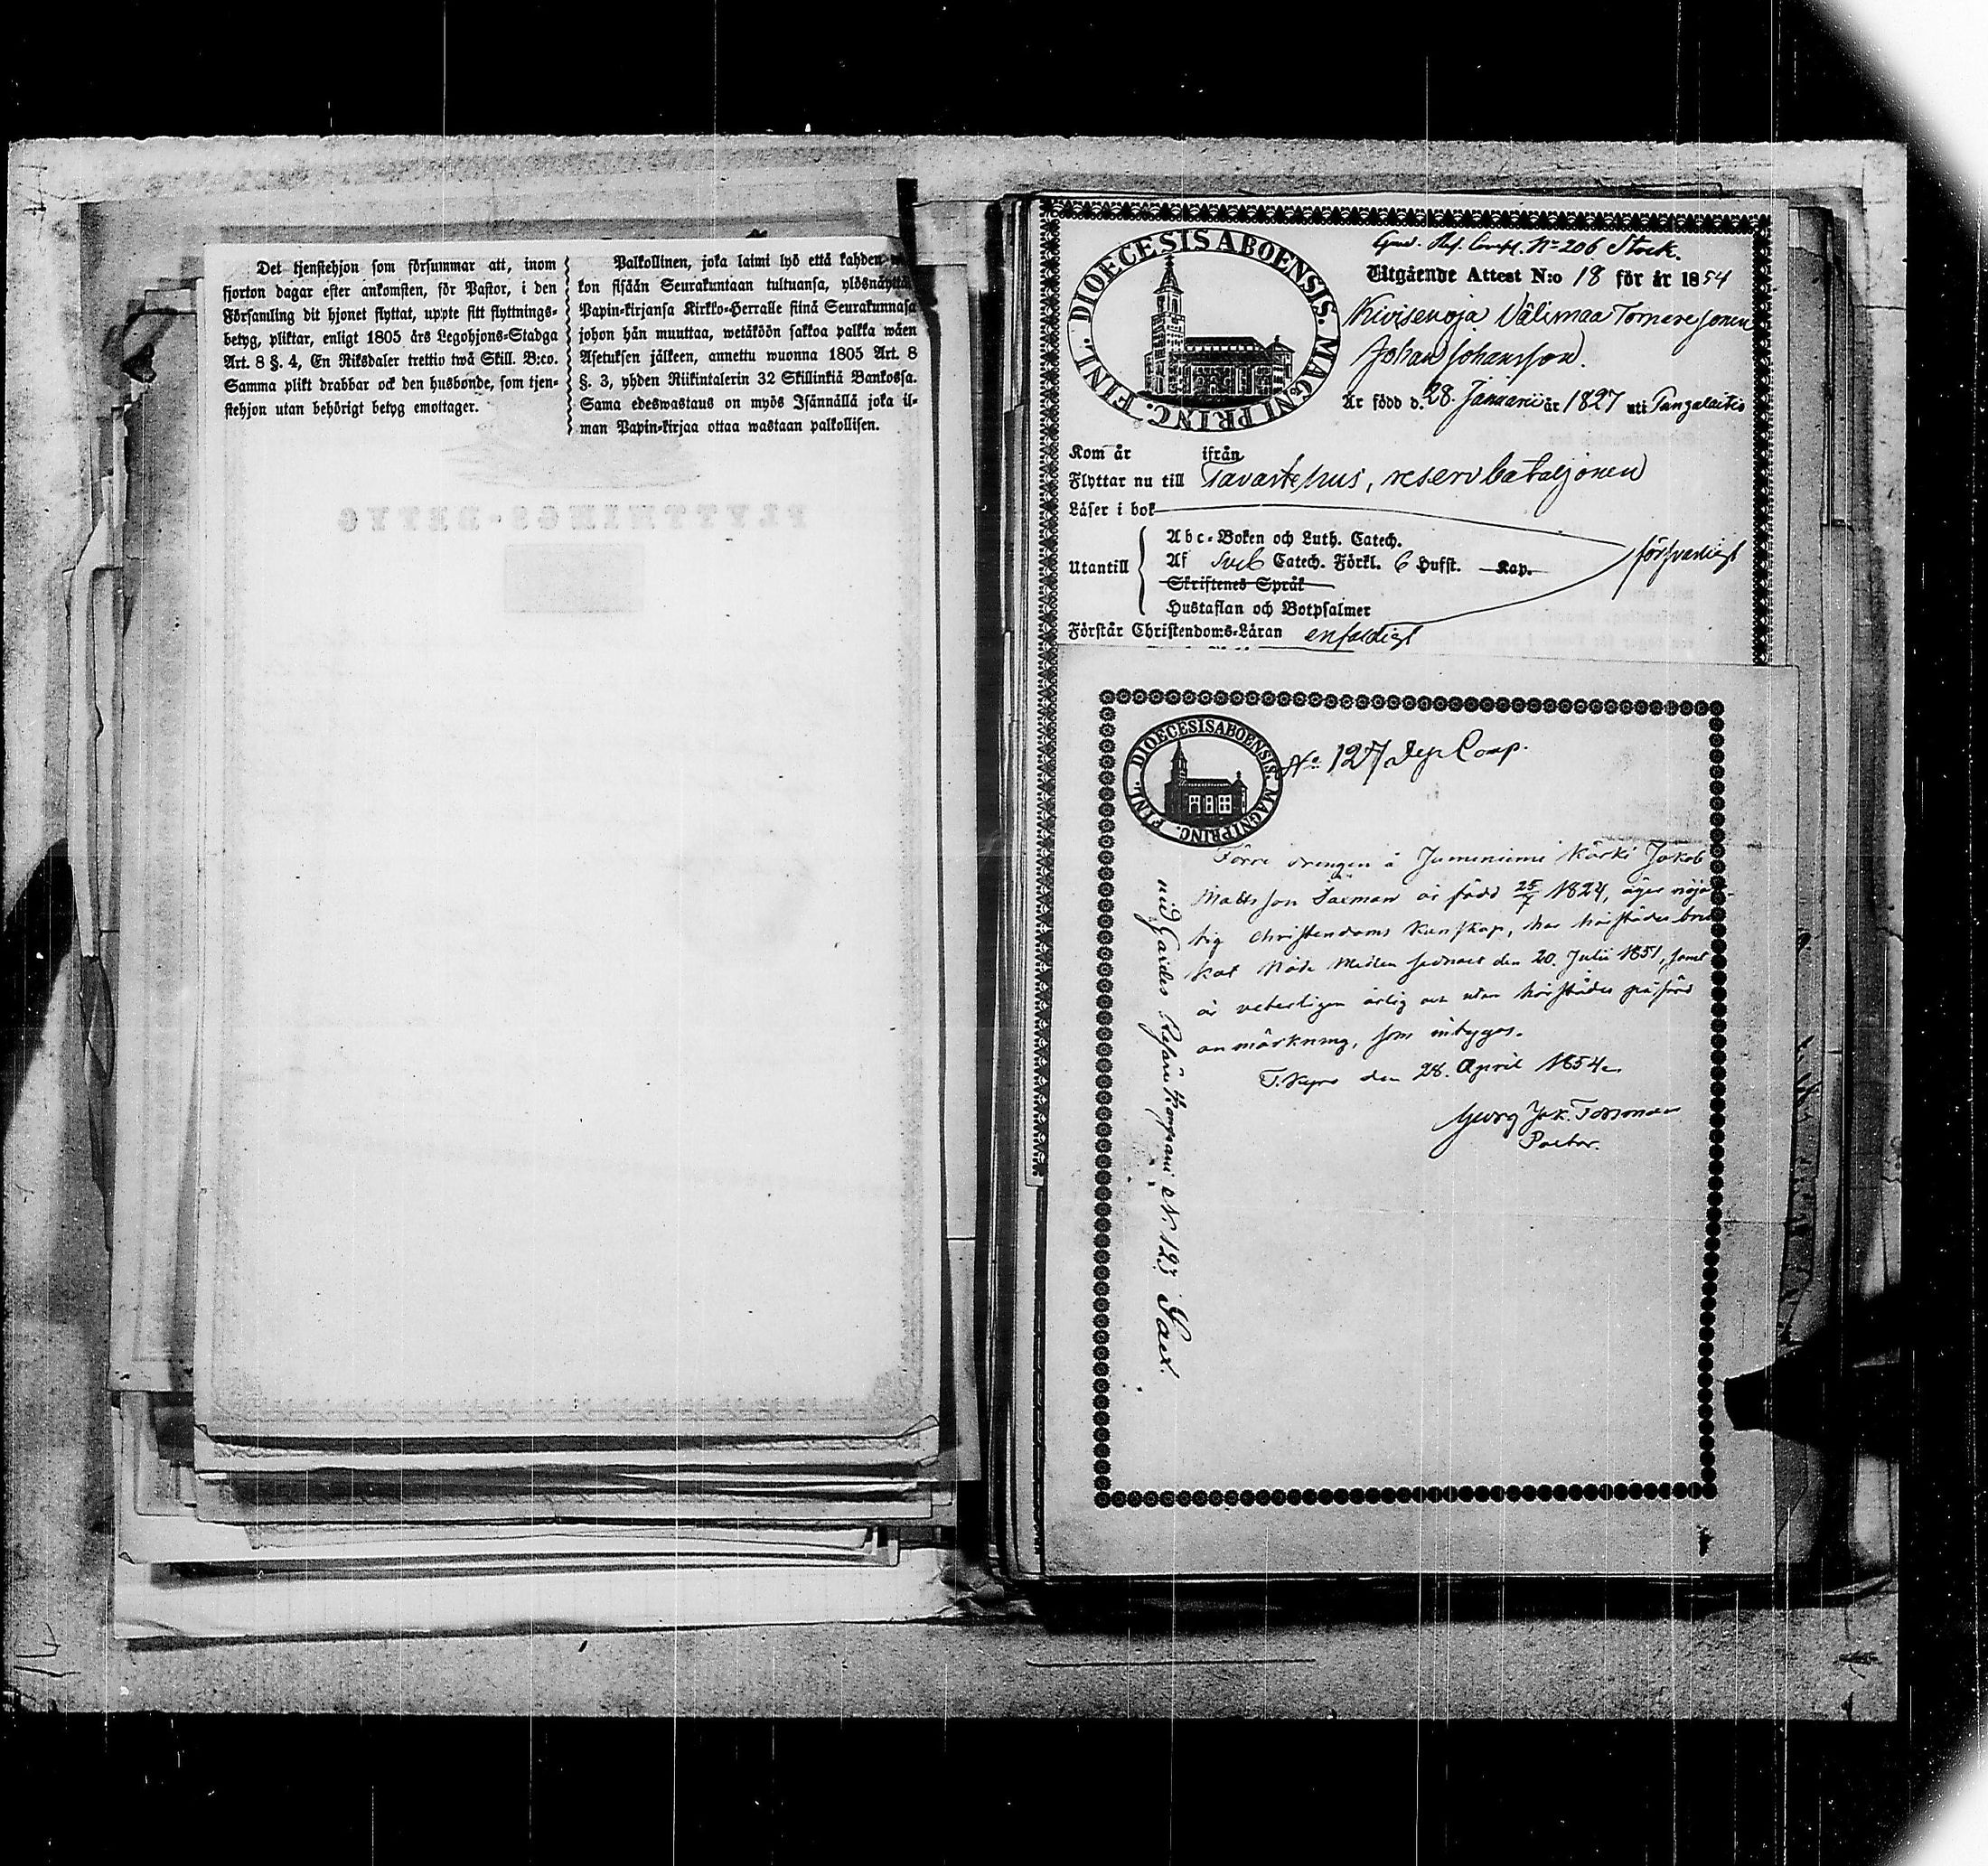 Det tjenstehjon som försummar att, inom
fjorton dagar efter ankomsten, för Pastor, i den
Församling dit hjonet flyttat, uppte sitt flyttnings-
betyg, pliktar, enligt 1805 års Legohjons-Stadga
Art. 8 §. 4, En Riksdaler trettio twå Skill. B:co.
Samma plikt drabbar ock den husbonde, som tjen-
stehjon utan behörigt betyg emottager.
Palkollinen, joka laimi lyö että kahden
kon sisään Seurakuntaan tultuansa, ylösnäyttä
Papin-kirjansa Kirkko-Herralle siinä Seurakunnasa
johon hän muuttaa, wetäköön sakkoa palkka wäen
Asetuksen jälkeen, annettu wuonna 1805 Art. 8
§. 3, yhden Riikintalerin 32 Skillinkiä Bankossa.
Sama edeswastaus on myös Isännällä joka il-
man Papin-kirjaa ottaa wastaan palkollisen.
FLYTTNINGS-BETYG
DIOECESIS ABOENSIS. MAGNI PRINC. FINL.
N:o 206 Stock.
Utgående Attest N:o 18 för år 1854
Kivisenoja Välimaa
Johan Johansson.
Är född d. 28 Januarii år 1827 uti
Kom år ifrån
Flyttar nu till Tavastehus, reserv bataljonen
Läser i bok
Abc-Boken och Luth. Catech.
Utantill Af Sveb Catech. Förkl. 6 Hufst. Kap. försvarligt
Skriftenes Språk
Hustaflan och Botpsalmer
Förstår Christendoms-Läran enfaldigt
DIOECESIS ABOENSIS. MAGNI PRINC. FINL.
No 127 Comp.
Förre drengen å Jumeniemi Kärki Jakob
Mattsson Saxman är född 25/7 1824, äger nöjak-
tig Christendoms kunskap, har härstädes bru
kat Nåde Medlen sednast den 20. Julii 1851, samt
är veterligen ärlig och utan härstädes påförd
anmärkning, som intygas.
T.Kyro den 28. April 1854.
Georg Jak. Forsman
Pastor.
vid Gardes Reserv Kompani N. 123 Sax.